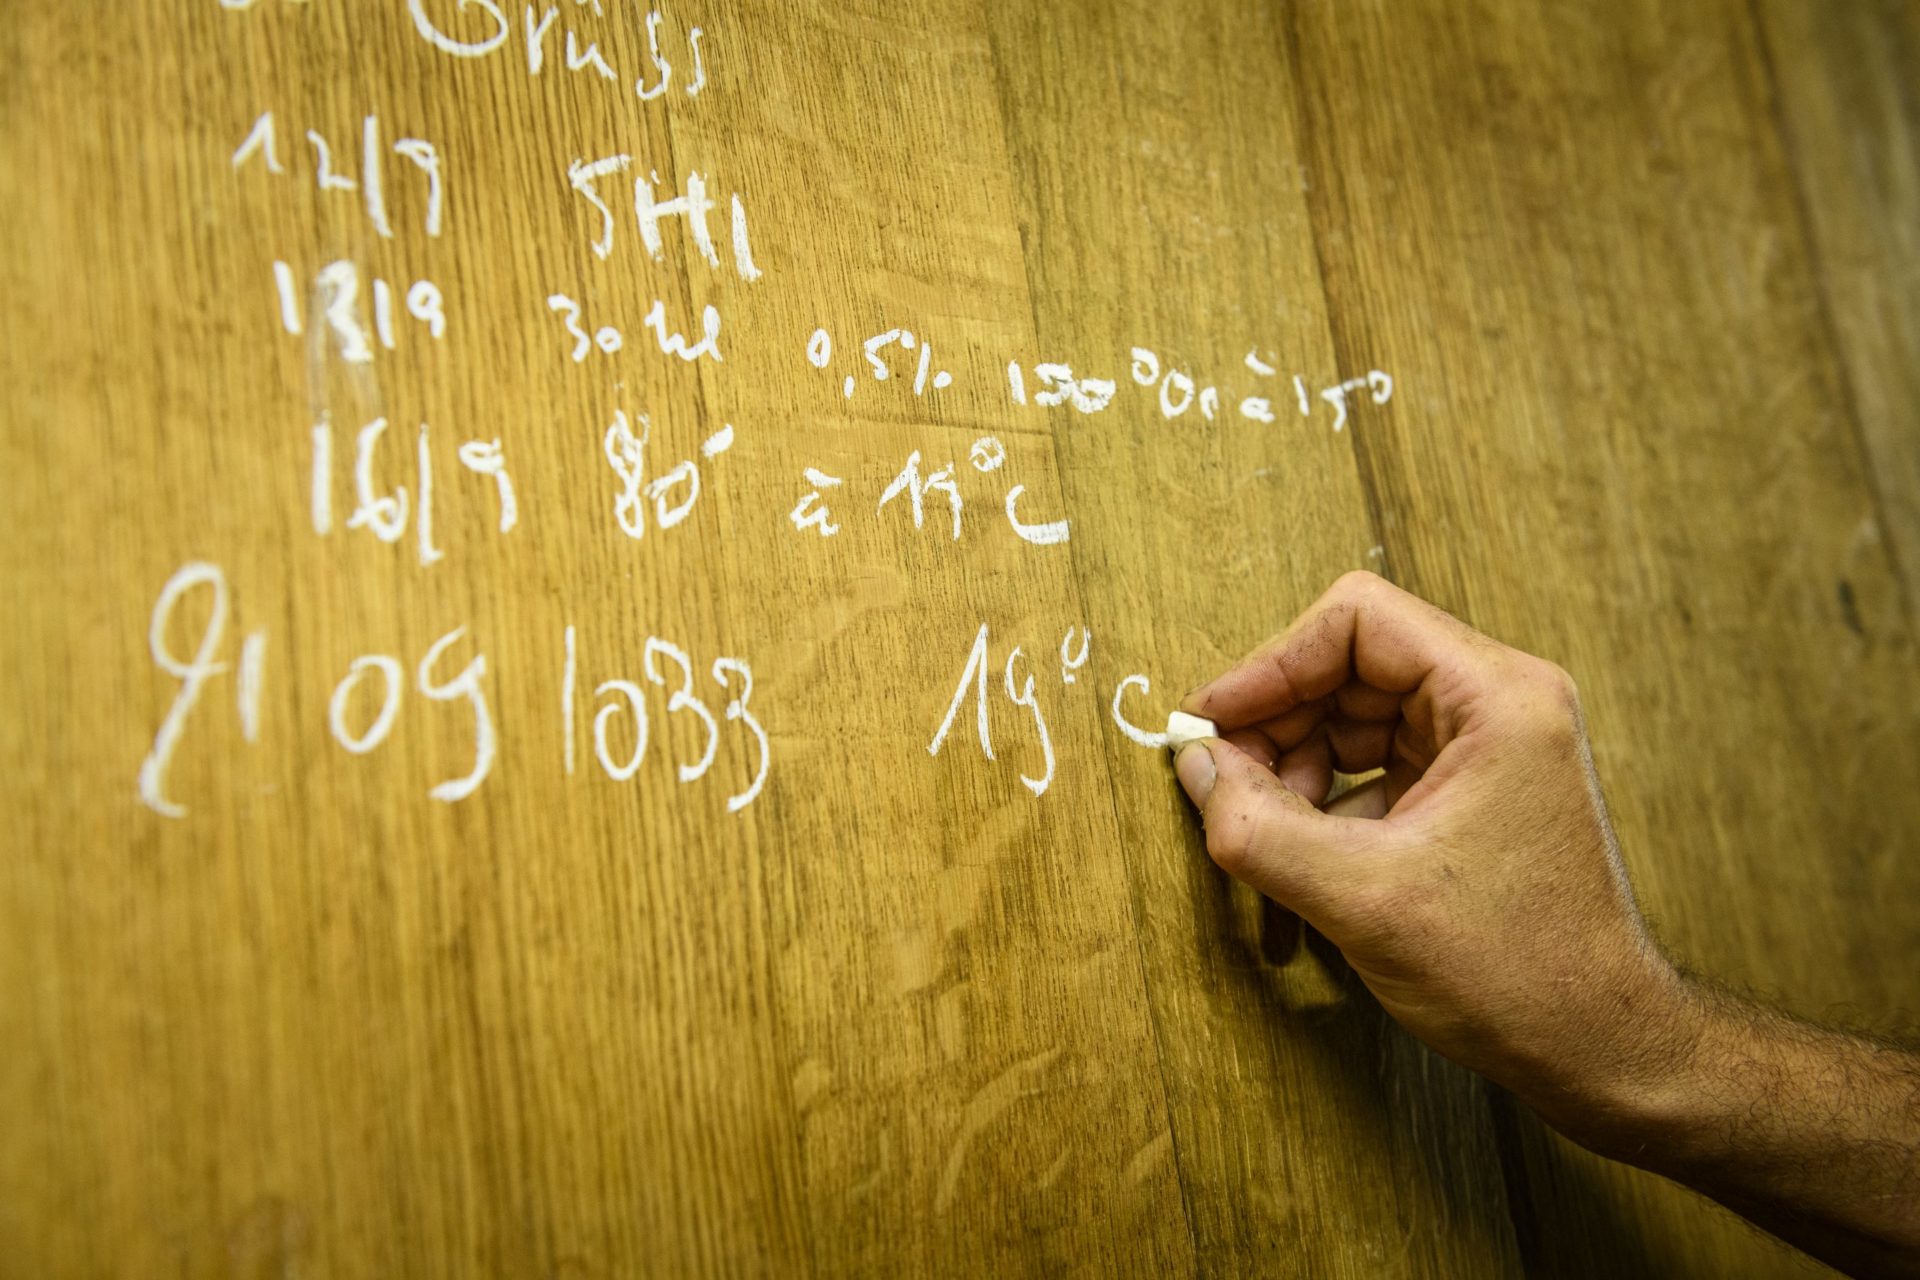 Grüss
12/9 5Hl
13/9 30 hl 0,5% 150°Oe à 15°
16/9 80 à 19°C
21 09 1033 19°C